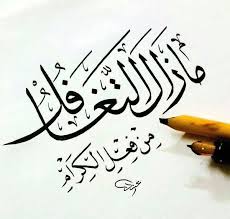 مَا زَالَ التَّغَافُلُ
مِنْ فِعْلِ الْكِرَامِ